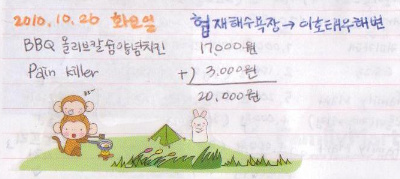 2010.10.26 화요일 협재해수욕장→이호태우해변
BBQ 올리브칼슘양념치킨 17,000원
Pain killer +) 3,000원
20,000원